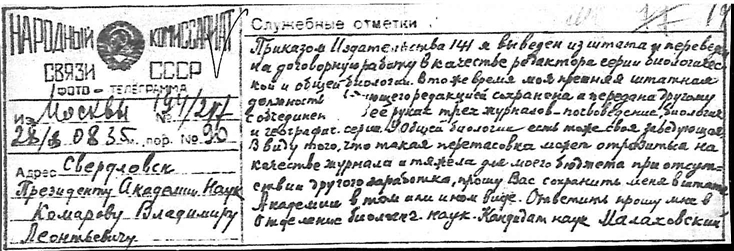 НАРОДНЫЙ КОМИССАРИАТ
СВЯЗИ СССР
ФОТО - ТЕЛЕГРАММА
Из Москвы №
28/8 0835 пор. № 90
Адрес Свердловск
Президенту Академии Наук
Комарову Владимиру
Леонтьевичу
Служебные отметки
Приказом Издательства 141 я выведен из штата и переведен
на договорную работу в качестве редактора серии биологичес
кой и общей биологии. В то же время моя прежняя штатная
должность ющего редакцией сохранена и передана другому
с объединен ее руках трех журналов - почвоведение, биология
и географич. серия. В Общей биологии есть тоже своя заведующая
В виду того, что такая перетасовка может отразиться на
качестве журнала и тяжела для моего бюджета при отсут-
ствии другого заработка, прошу Вас сохранить меня в штате
Академии в том или ином виде. Ответить прошу мне в
Отделение биологич наук. Кандидат наук Малаховский